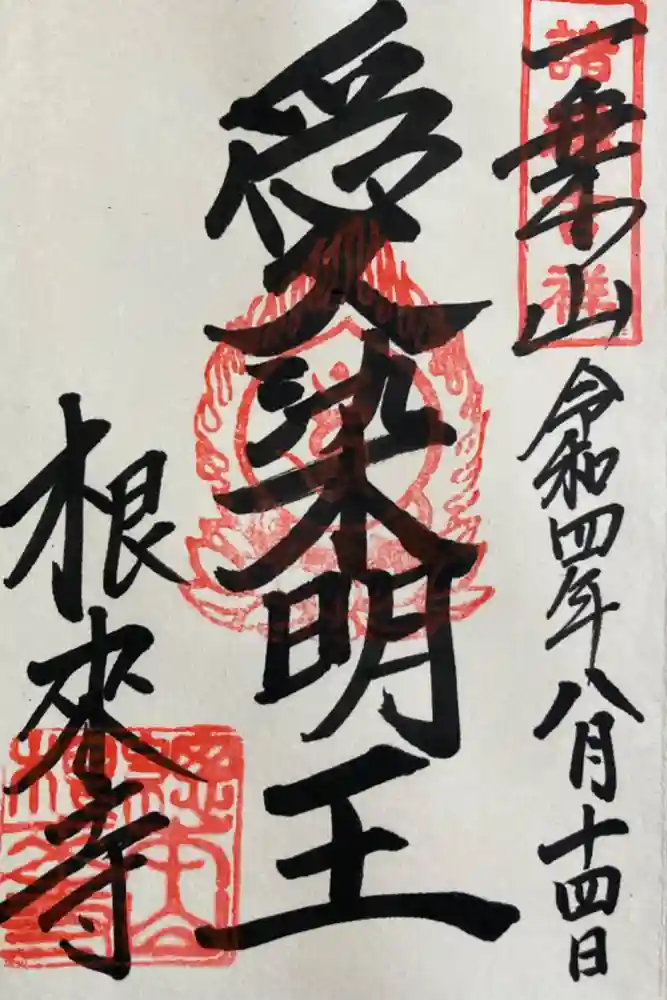 一乗山 令和四年八月十四日
愛染明王
根來寺